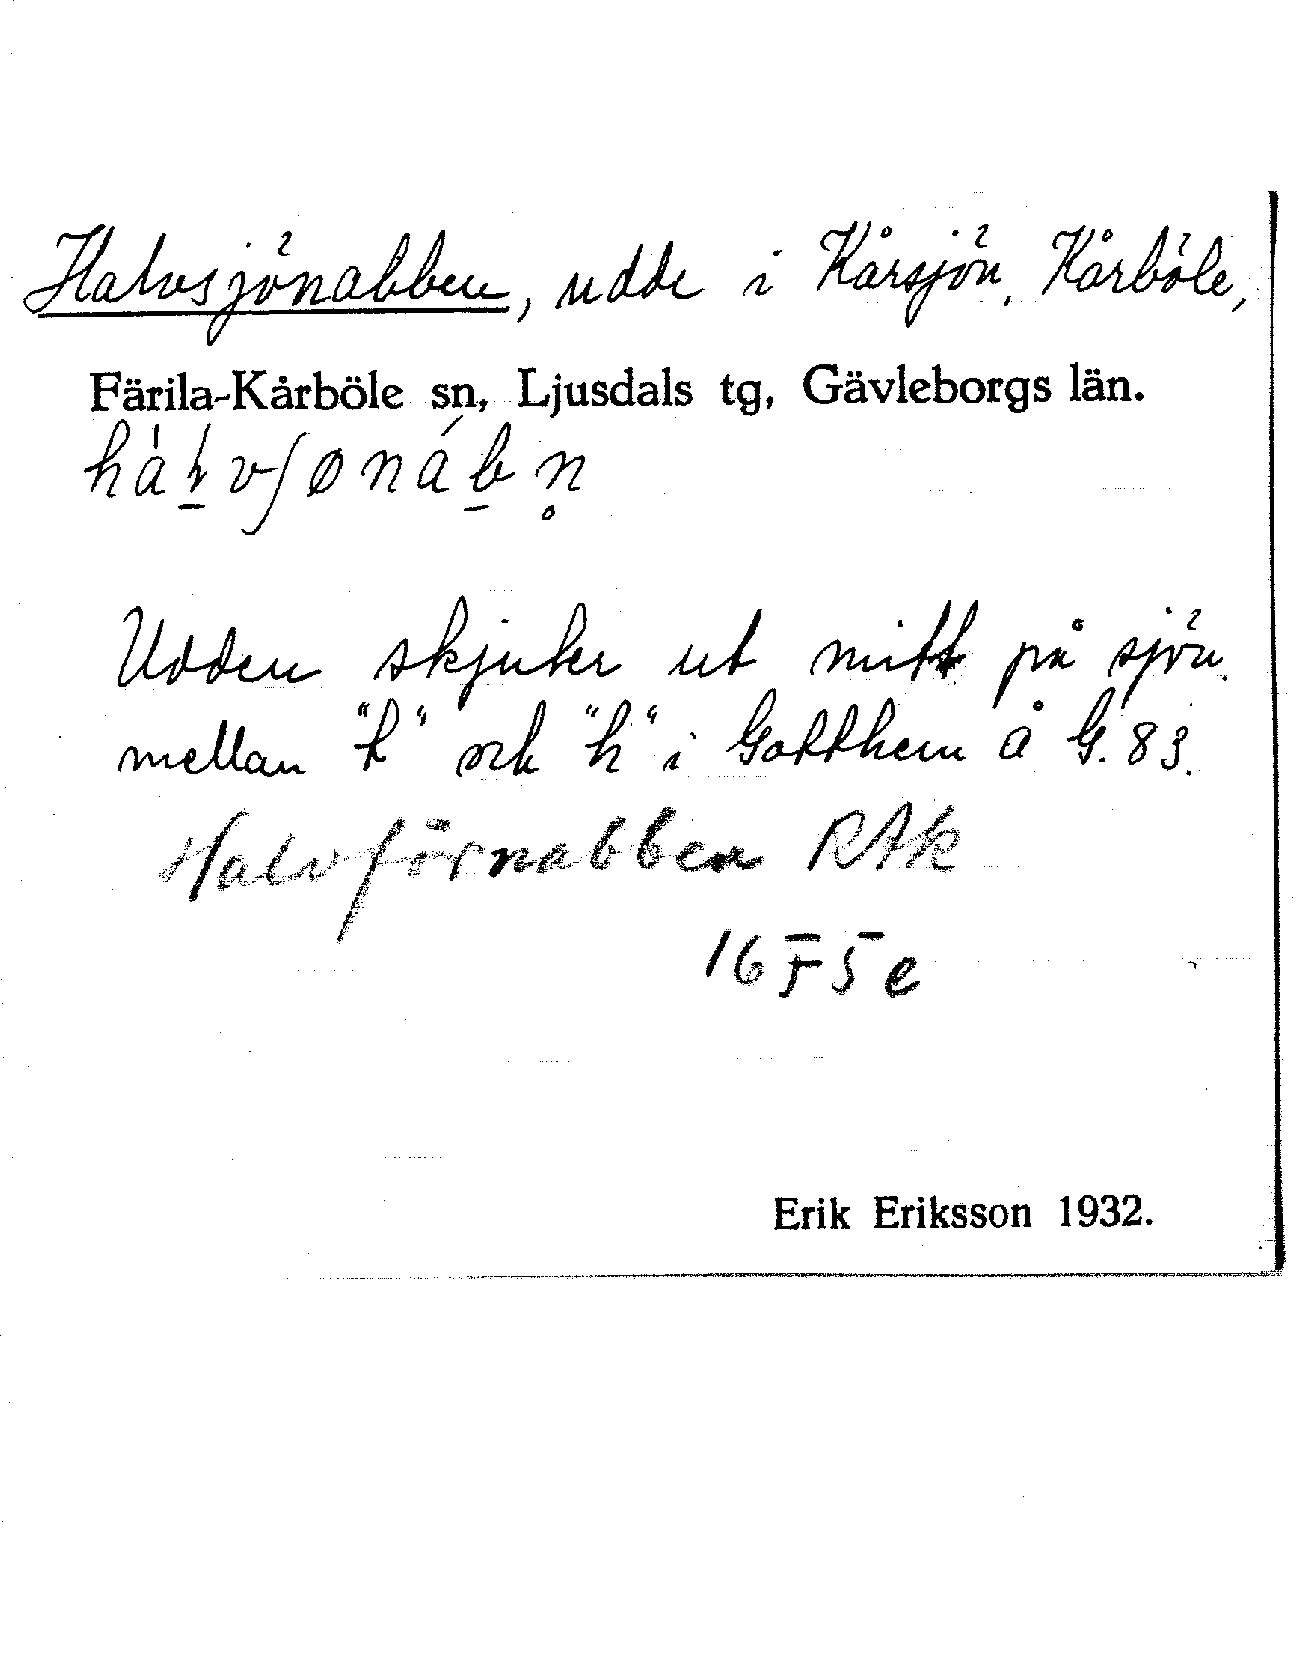 Halvsjönabben, udde i Kårsjön, Kårböle,
Färila-Kårböle sn, Ljusdals tg, Gävleborgs län.
Udden skjuter ut mitt på sjön.
mellan "t" och "h" i Gotthem å G. 83.
Halvsjörnabben RAk
16 F 5 e
Erik Eriksson 1932.